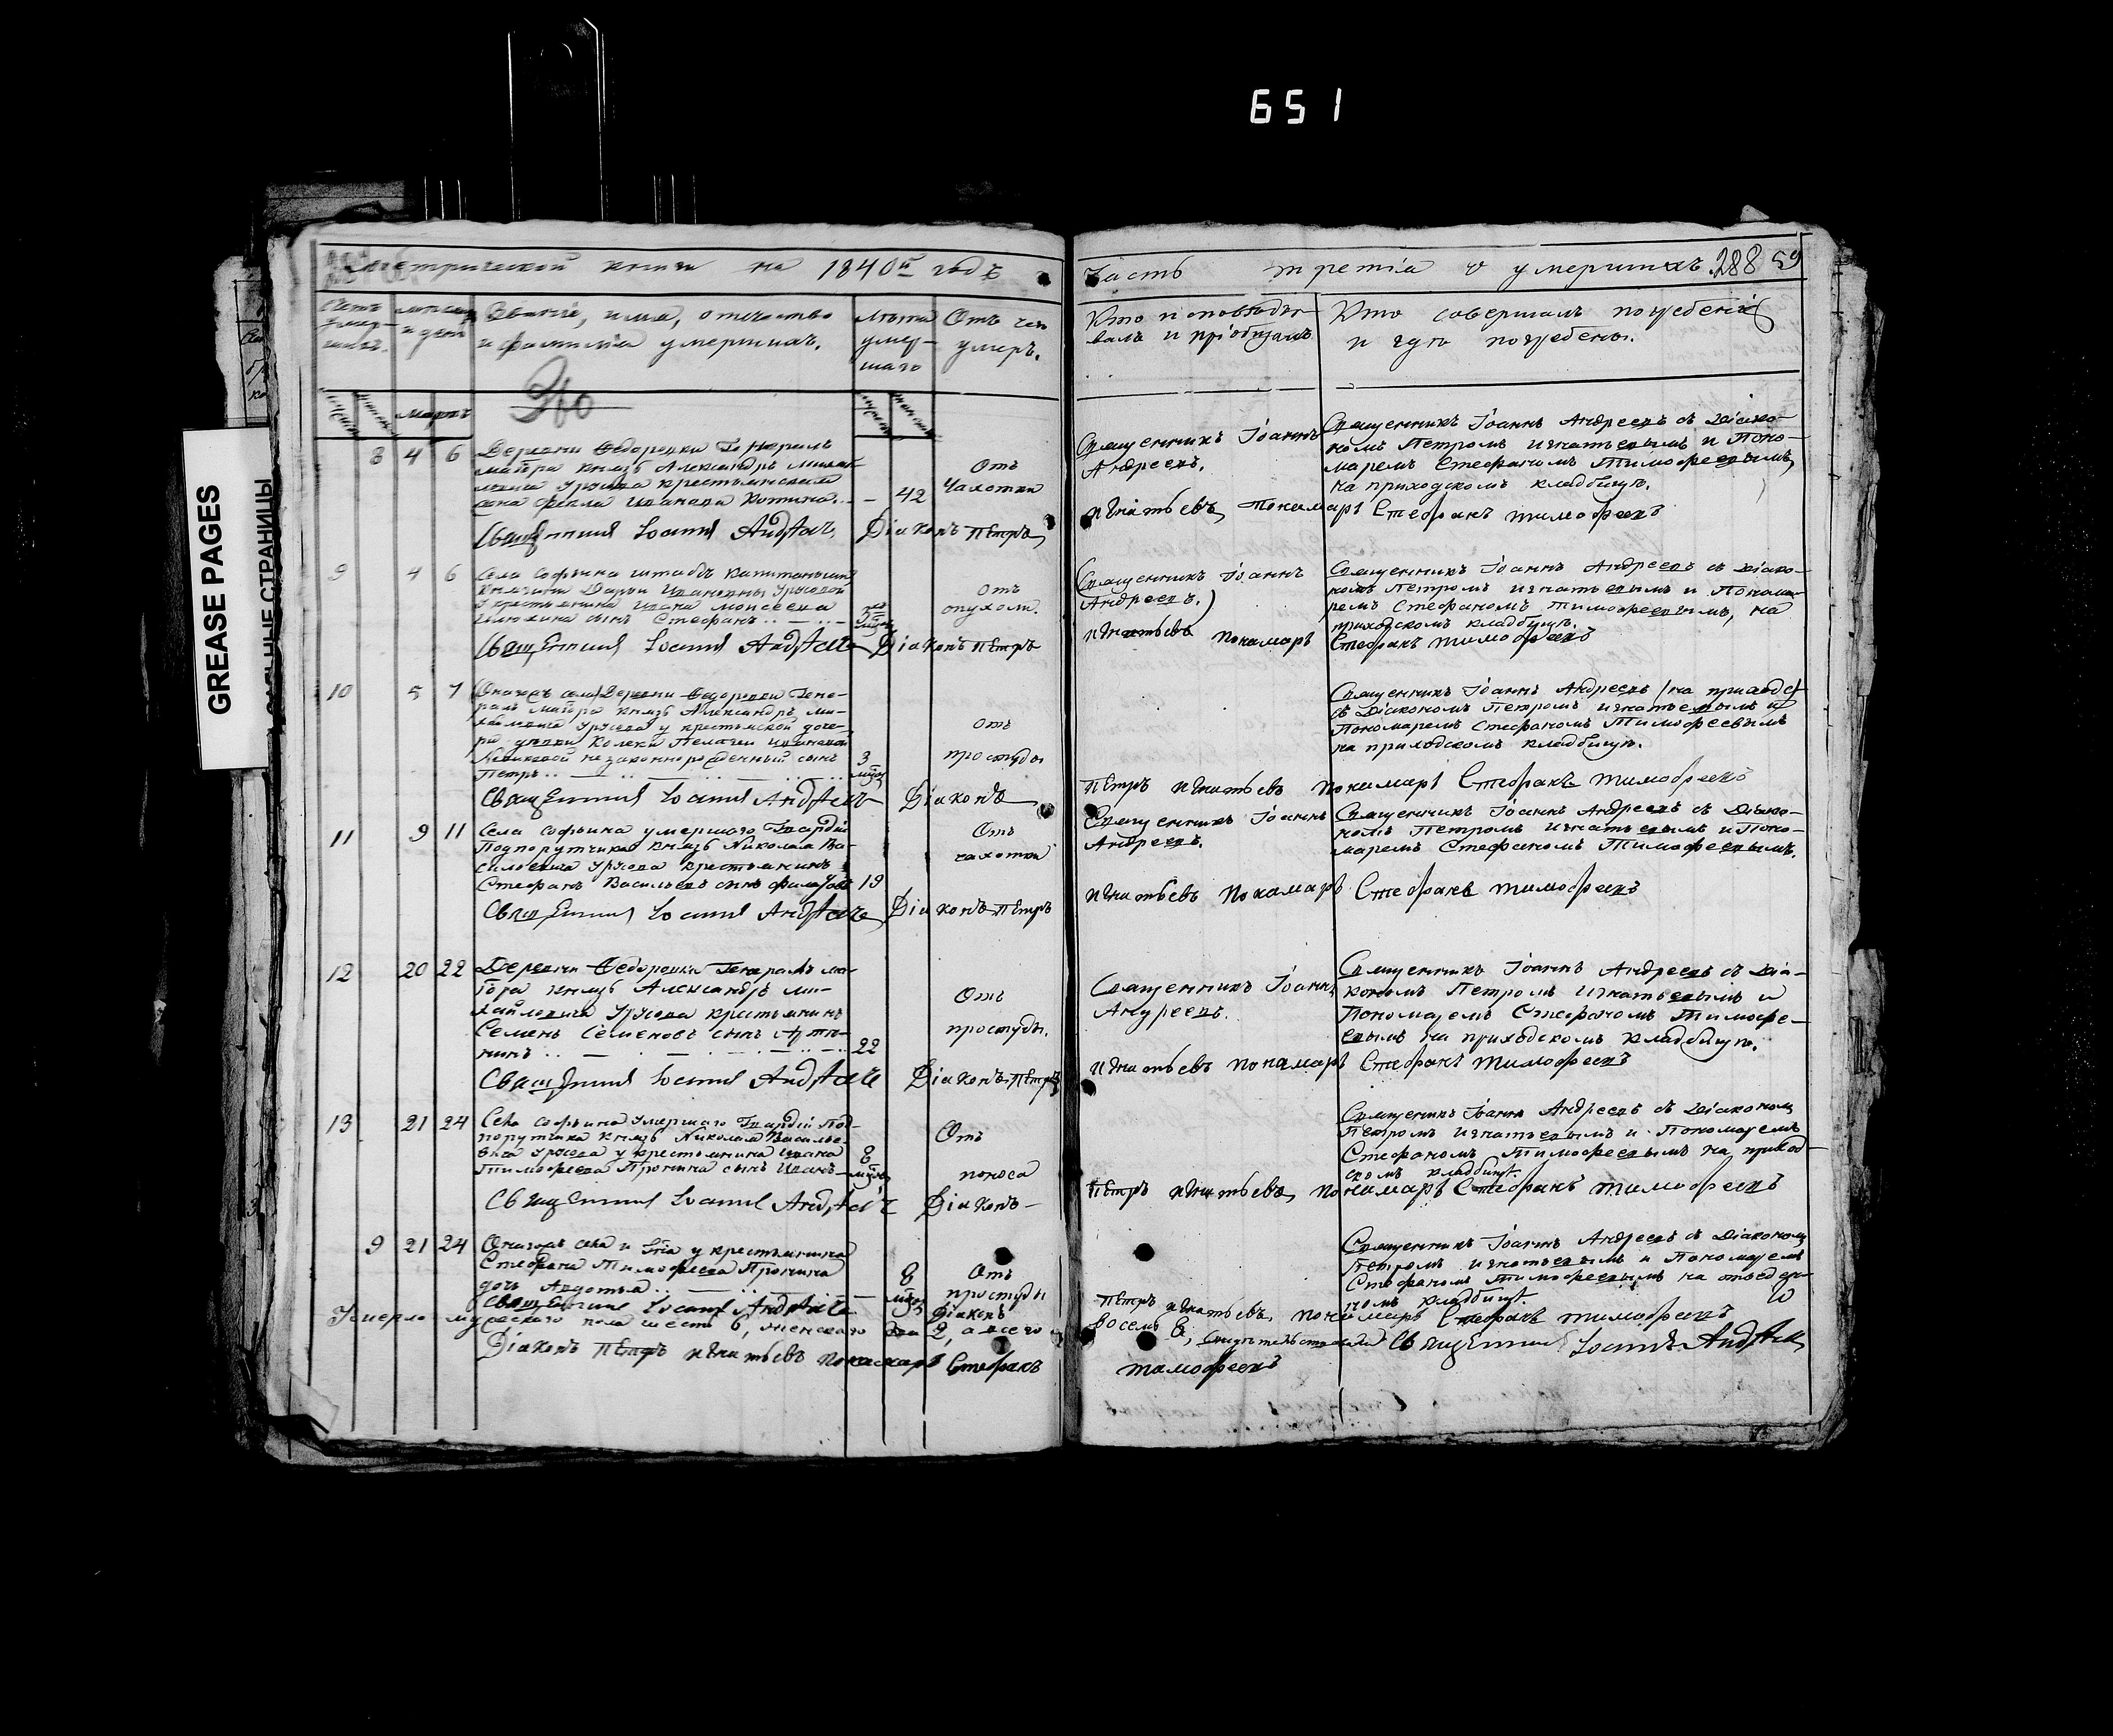 651
GREASE PAGES
СТРАНИЦЫ
Метрической книги на 1840й годъ
Часть третія о умершихъ. 288 59
Счетъ умершихъ.
мѣсяцъ и день
Званіе, имя, отчество
и фамилія умершихъ.
Лѣта умершаго
Отъ чего умеръ.
Кто исповѣды-
валъ и пріобщалъ
Кто совершалъ погребеніе
и гдѣ погребены.
Мартъ
8 4 6
Деревни Ѳедоровки Генералъ
маіора князь Александръ Михай-
ловича Урусова крестьянская
жена Фекла Иванова
– 42
Отъ
Чахотки
Священникъ Іоаннъ
Андреевъ.
Священникъ Іоаннъ Андреевъ съ Діако-
номъ Петромъ Игнатьевымъ и Поно-
маремъ Стефаномъ Тимофеевымъ,
на приходскомъ кладбищѣ.
Священникъ Іоаннъ Андреевъ Діаконъ Петръ
Игнатьевъ, Понамарь Стефанъ Тимофеевъ
9 4 6
Села Софьина штабъ Капитанши
Княгини Дарьи Ивановны Урусовой
у крестьянина Ивана Моисеева
сынъ Стефанъ
Отъ
опухоли.
Священникъ Іоаннъ
Андреевъ.
Священникъ Іоаннъ Андреевъ съ Діако-
номъ Петромъ Игнатьевымъ и Понома-
ремъ Стефаномъ Тимофеевымъ, на
приходскомъ кладбищѣ.
Священникъ Іоаннъ Андреевъ Діаконъ Петръ
Игнатьевъ Понамарь Стефанъ Тимофеевъ
10 5 7
Деревни Ѳедоровки Гене-
ралъ Маіора князь Александръ Ми-
хайловича Урусова у крестьянской доче-
ри дѣвки Пелагеи Ивановой
незаконнорожденный сынъ
Петръ
3 мѣсяц
Отъ
простуды
Священникъ Іоаннъ Андреевъ
съ Діакономъ Петромъ Игнатьевымъ и
Пономаремъ Стефаномъ Тимофеевымъ
на приходскомъ кладбищѣ.
Священникъ Іоаннъ Андреевъ Діаконъ
Петръ Игнатьевъ Понамарь Стефанъ Тимофеевъ
11 9 11
Села Софьина умершаго Гвардіи
Подпорутчика князь Николая Ва-
сильевича Урусова крестьянинъ
Стефанъ Васильевъ сынъ
19
Отъ
чахотки
Священникъ Іоаннъ
Андреевъ.
Священникъ Іоаннъ Андреевъ съ Діако-
номъ Петромъ Игнатьевымъ и Поно-
маремъ Стефаномъ Тимофеевымъ.
Священникъ Іоаннъ Андреевъ Діаконъ Петръ
Игнатьевъ Понамарь Стефанъ Тимофеевъ
12 20 22
Деревни Ѳедоровки Генералъ ма-
іора князь Александръ Ми-
хайловича Урусова крестьянинъ
Семенъ Семеновъ сынъ
22
Отъ
простуды.
Священникъ Іоаннъ
Андреевъ.
Священникъ Іоаннъ Андреевъ съ Діа-
кономъ Петромъ Игнатьевымъ и
Пономаремъ Стефаномъ Тимофе-
евымъ на приходскомъ кладбищѣ.
Священникъ Іоаннъ Андреевъ Діаконъ Петръ
Игнатьевъ Понамарь Стефанъ Тимофеевъ
13 21 24
Села Софьина умершаго Гвардіи Под-
порутчика князь Николая Василье-
вича Урусова у крестьянина Ивана
Тимофеева Пронина сынъ Иванъ
8 мѣсяц
Отъ
поноса
Священникъ Іоаннъ Андреевъ съ Діакономъ
Петромъ Игнатьевымъ и Пономаремъ
Стефаномъ Тимофеевымъ на приход-
скомъ кладбищѣ.
Священникъ Іоаннъ Андреевъ Діаконъ
Петръ Игнатьевъ, Понамарь Стефанъ Тимофеевъ
9 21 24
села и у крестьянина
Стефана Тимофеева Пронина
дочь Авдотья
8
Отъ
простуды
Священникъ Іоаннъ Андреевъ съ Діакономъ
Петромъ Игнатьевымъ и Пономаремъ
Стефаномъ Тимофеевымъ на
кладбищѣ.
Священникъ Іоаннъ Андреевъ Діаконъ
Петръ Игнатьевъ, Понамарь Стефанъ Тимофеевъ
Умерло мужескаго пола шесть 6, женскаго два 2, а всего
восемь 8, Священникъ Іоаннъ Андреевъ
Діаконъ Петръ Игнатьевъ Понамарь Стефанъ
Тимофеевъ